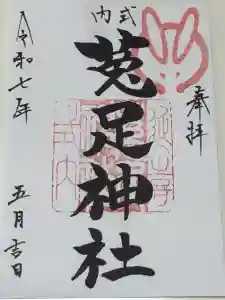 奉拝
式内
菟足神社
令和七年
五月吉日